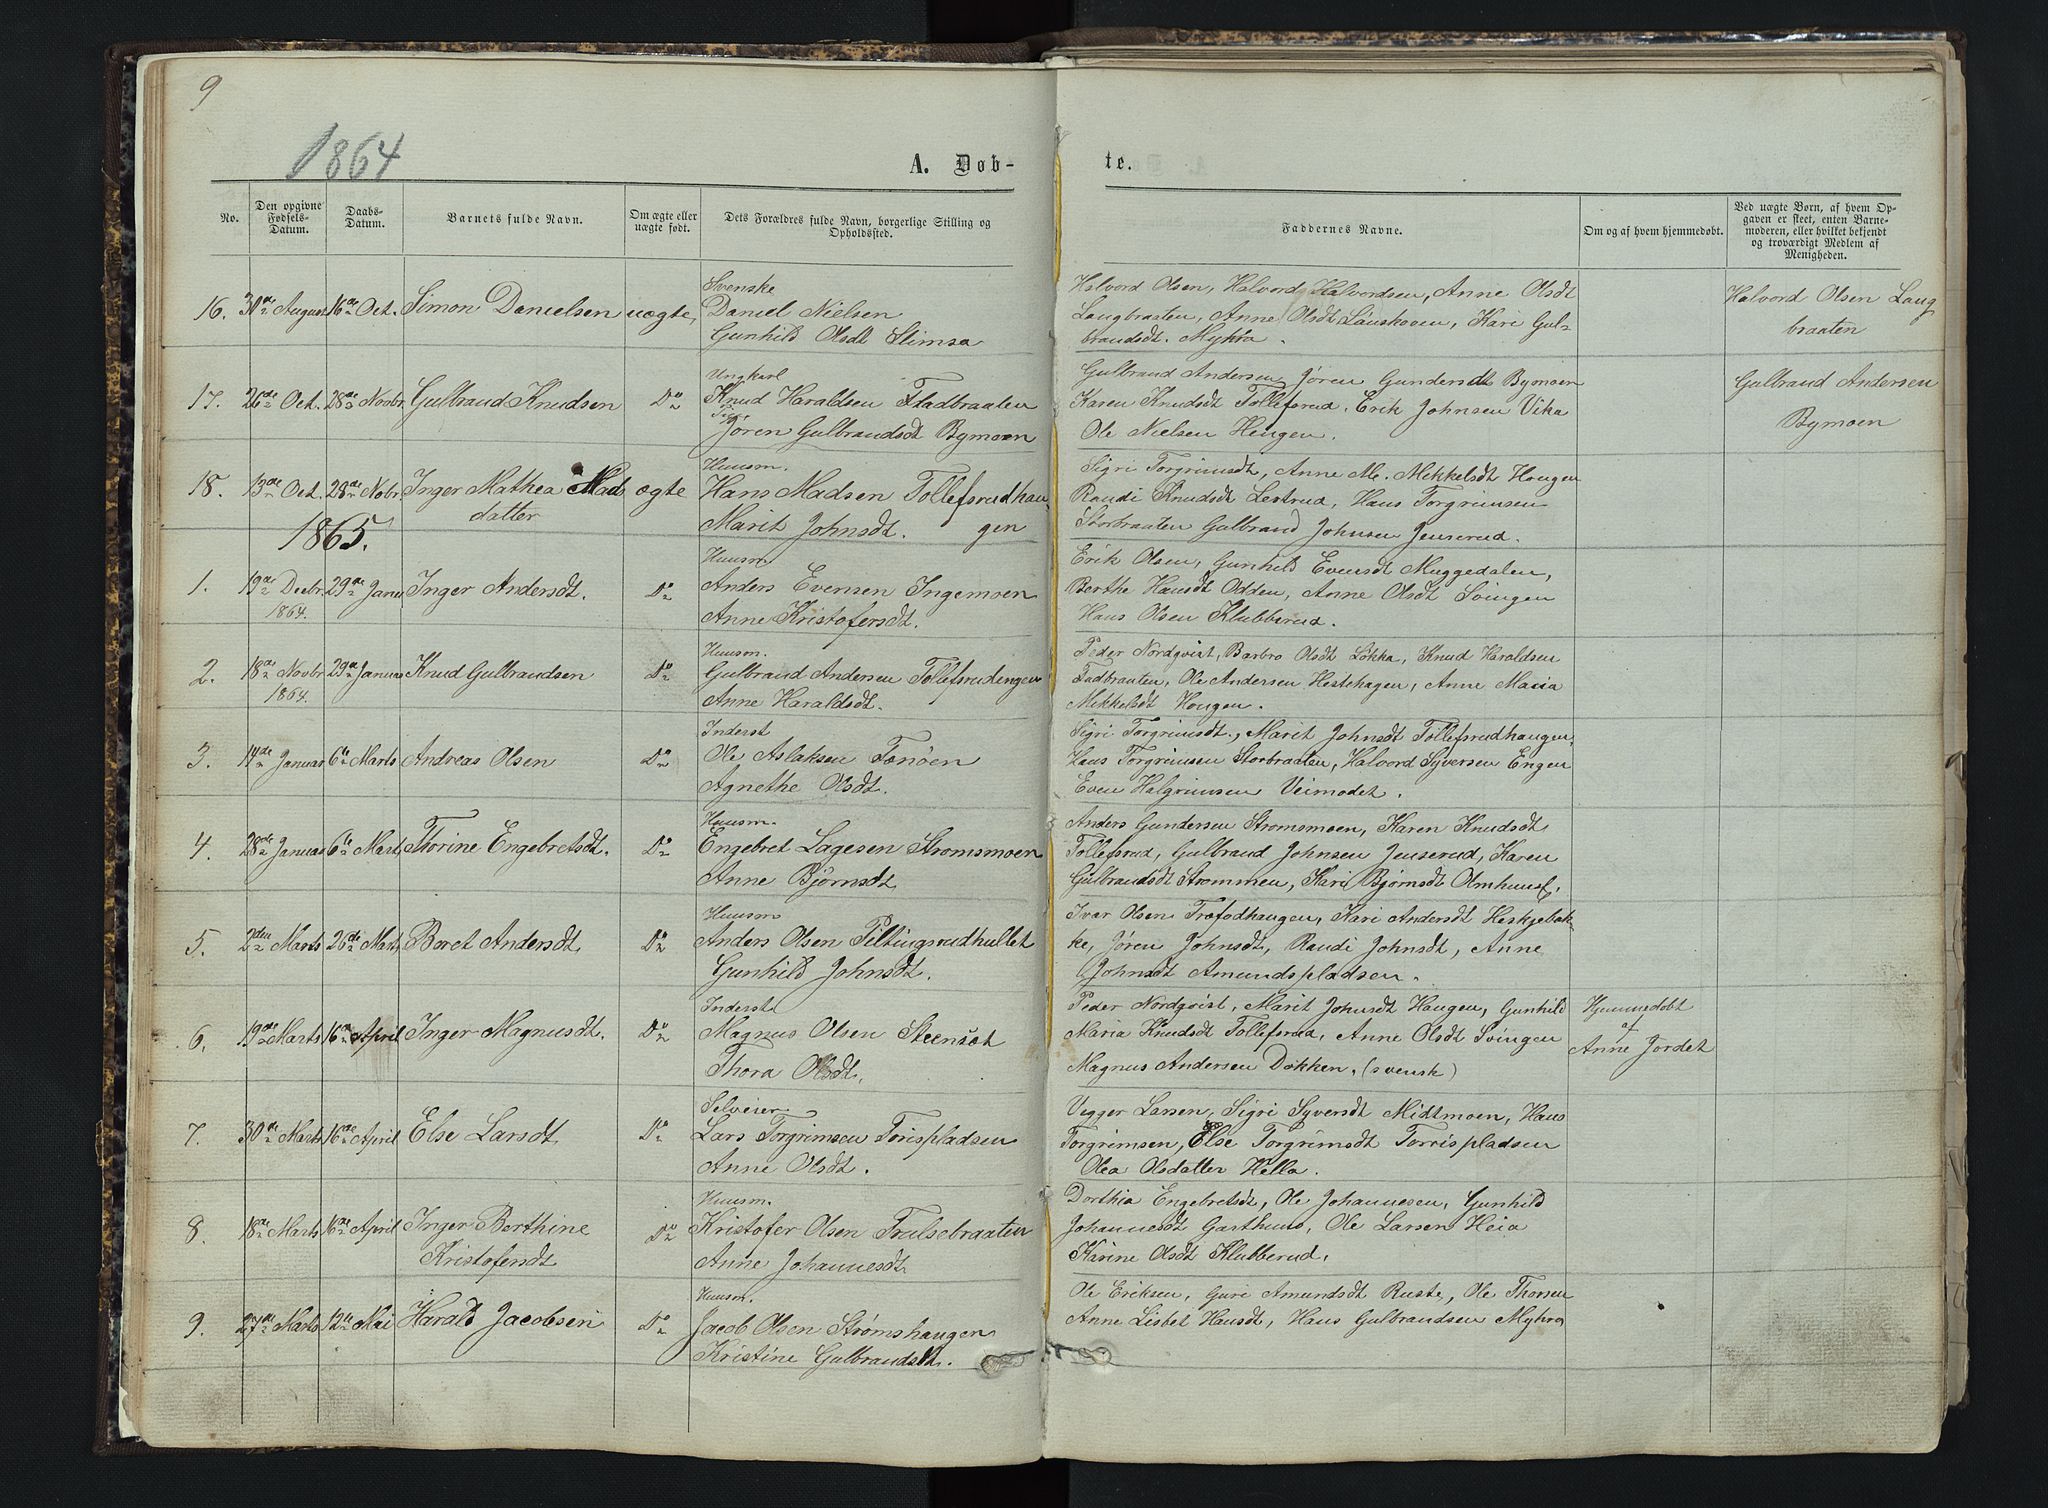 9
1864
A. Døb-
te.
No.
Den opgivne Fødsels-Datum.
Daabs-Datum.
Barnets fulde Navn.
Om ægte eller uægte født.
Dets Forældres fulde Navn, borgerlige Stilling og Opholdssted.
Faddernes Navne.
Om og af hvem hjemmedøbt.
Ved uægte Børn, af hvem Opgaven er skeet, enten Barnemoderen, eller hvilket bekjendt og troværdigt Medlem af Menigheden.
Svenske
16. 30te August 16de Oct. Simon Danielsen uægte, Daniel Nielsen
Gunhild Olsdt Slimsa
Halvord Olsen, Halvord Halvordsen, Anne Olsdt
Langbraaten, Anne Olsdt Lauskoven, Kari Gul-
brandsdt. Myhra.
Halvord Olsen Lang
braaten
Ungkarl
17. 26de Oct. 28de Novbr Gulbrand Knudsen Do Knud Haraldsen Fladbraaten
Pige
Jøren Gulbrandsdt Bymoen
Gulbrand Andersen, Jøren Gundersdt Bymoen
Karen Knudsdt Tollefsrud, Erik Johnsen Vika
Ole Nielsen Hengen.
Gulbrand Andersen
Bymoen
Huusm.
18. 13de Oct. 28de Nobr Inger Mathea Mad ægte Hans Madsen Tollefsrudhau
datter
Marit Johnsdt. gen
Sigri Torgrimsdt, Anne M. Mekkelsdt Hougen
Randi Knudsdt Lestrud, Hans Torgrimsen
Storbraaten Gulbrand Johnsen Jenserud.
1865.
Huusm.
1. 19de Decbr 29de Janu Inger Andersdt. Do Anders Evensen Ingemoen
1864.
Anne Kristofersdt.
Erik Olsen, Gunhild Evensdt Muggedalen,
Berthe Hansdt Odden, Anne Olsdt Svingen
Hans Olsen Klubberud.
Huusm.
2. 18de Novbr 29de Januar Knud Gulbrandsen Do Gulbrand Andersen Tollefsrudengen
1864.
Anne Haraldsdt.
Peder Nordqvist, Barbro Olsdt Løkka, Knud Haraldsen
Fladbraaten, Ole Andersen Hestehagen, Anne Maria
Mekkelsdt Hougen.
Inderst
3. 14de Januar 6te Marts Andreas Olsen Do Ole Aslaksen Fonøen
Agnethe Olsdt.
Sigri Torgrimsdt., Marit Johnsdt Tollefsrudhaugen,
Hans Torgrimsen Storbraaten, Halvord Syversen Engen
Even Halgrimsen Veimodet.
Huusm.
4. 28de Januar 6te Marts Thorine Engebretsdt. Do Engebret Lagesen Strømsmoen
Anne Bjørnsdt
Anders Gundersen Strømsmoen, Karen Knudsdt
Tollefsrud, Gulbrand Johnsen Jenserud, Karen
Gulbrandsdt Strømmen, Kari Bjørnsdt Olmhuus.
Huusm
5. 2den Marts 26de Marts Boret Andersdt. Do Anders Olsen Piltingsrudhullet
Gunhild Johnsdt.
Ivar Olsen Træfodhaugen, Kari Andersdt Heskjebæk-
ke, Jøren Johnsdt, Randi Johnsdt, Anne
Johnsdt Amundspladsen.
Inderst
6. 19de Marts 16de April Inger Magnusdt. Do Magnus Olsen Steensæt
Thora Olsdt.
Peder Nordqvist, Marit Johnsdt Haugen, Gunhild
Maria Knudsdt Tollefsrud, Anne Olsdt Svingen
Magnus Andersen Dokken. (svensk)
Hjemmedøbt
af
Anne Jordet
Selveier
7. 30de Marts 16de April Else Larsdt Do Lars Torgrimsen Torispladsen
Anne Olsdt.
Vegger Larsen, Sigri Syversdt Midtmoen, Hans
Torgrimsen, Else Torgrimsdt Torrispladsen
Olea Olsdatter Hella.
Huusm.
8. 18de Marts 16de April Inger Berthine Do Kristofer Olsen Trulsebraaten
Kristofersdt
Anne Johannesdt
Dorthia Engebretsdt, Ole Johannesen, Gunhild
Johannesdt Garthuus, Ole Larsen Heia
Karine Olsdt Klubberud.
Huusm.
9. 27de Marts 12te Mai Harald Jacobsen Do Jacob Olsen Strømshaugen
Kristine Gulbrandsdt.
Ole Eriksen, Guri Amundsdt Ruste, Ole Thorsen
Anne Lisbet Hansdt, Hans Gulbrandsen Myhra